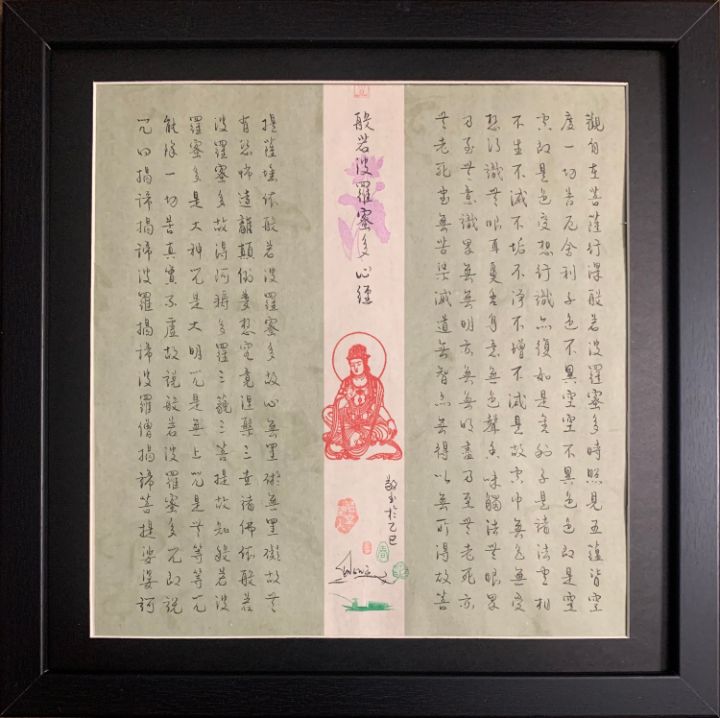 觀自在菩薩行深般若波羅蜜多時照見五蘊皆空
度一切苦厄舍利子色不異空空不異色色即是空
空即是色受想行識亦復如是舍利子是諸法空相
不生不滅不垢不淨不增不減是故空中無色無受
想行識無眼耳鼻舌身意無色聲香味觸法無眼界
乃至無意識界無無明亦無無明盡乃至無老死亦
無老死盡無苦集滅道無智亦無得以無所得故菩
般若波羅蜜多心經
敬書於乙巳
提薩埵依般若波羅蜜多故心無罣礙無罣礙故無
有恐怖遠離顛倒夢想究竟涅槃三世諸佛依般若
波羅蜜多故得阿耨多羅三藐三菩提故知般若波
羅蜜多是大神咒是大明咒是無上咒是無等等咒
能除一切苦真實不虛故說般若波羅蜜多咒即說
咒曰揭諦揭諦波羅揭諦波羅僧揭諦菩提娑婆訶